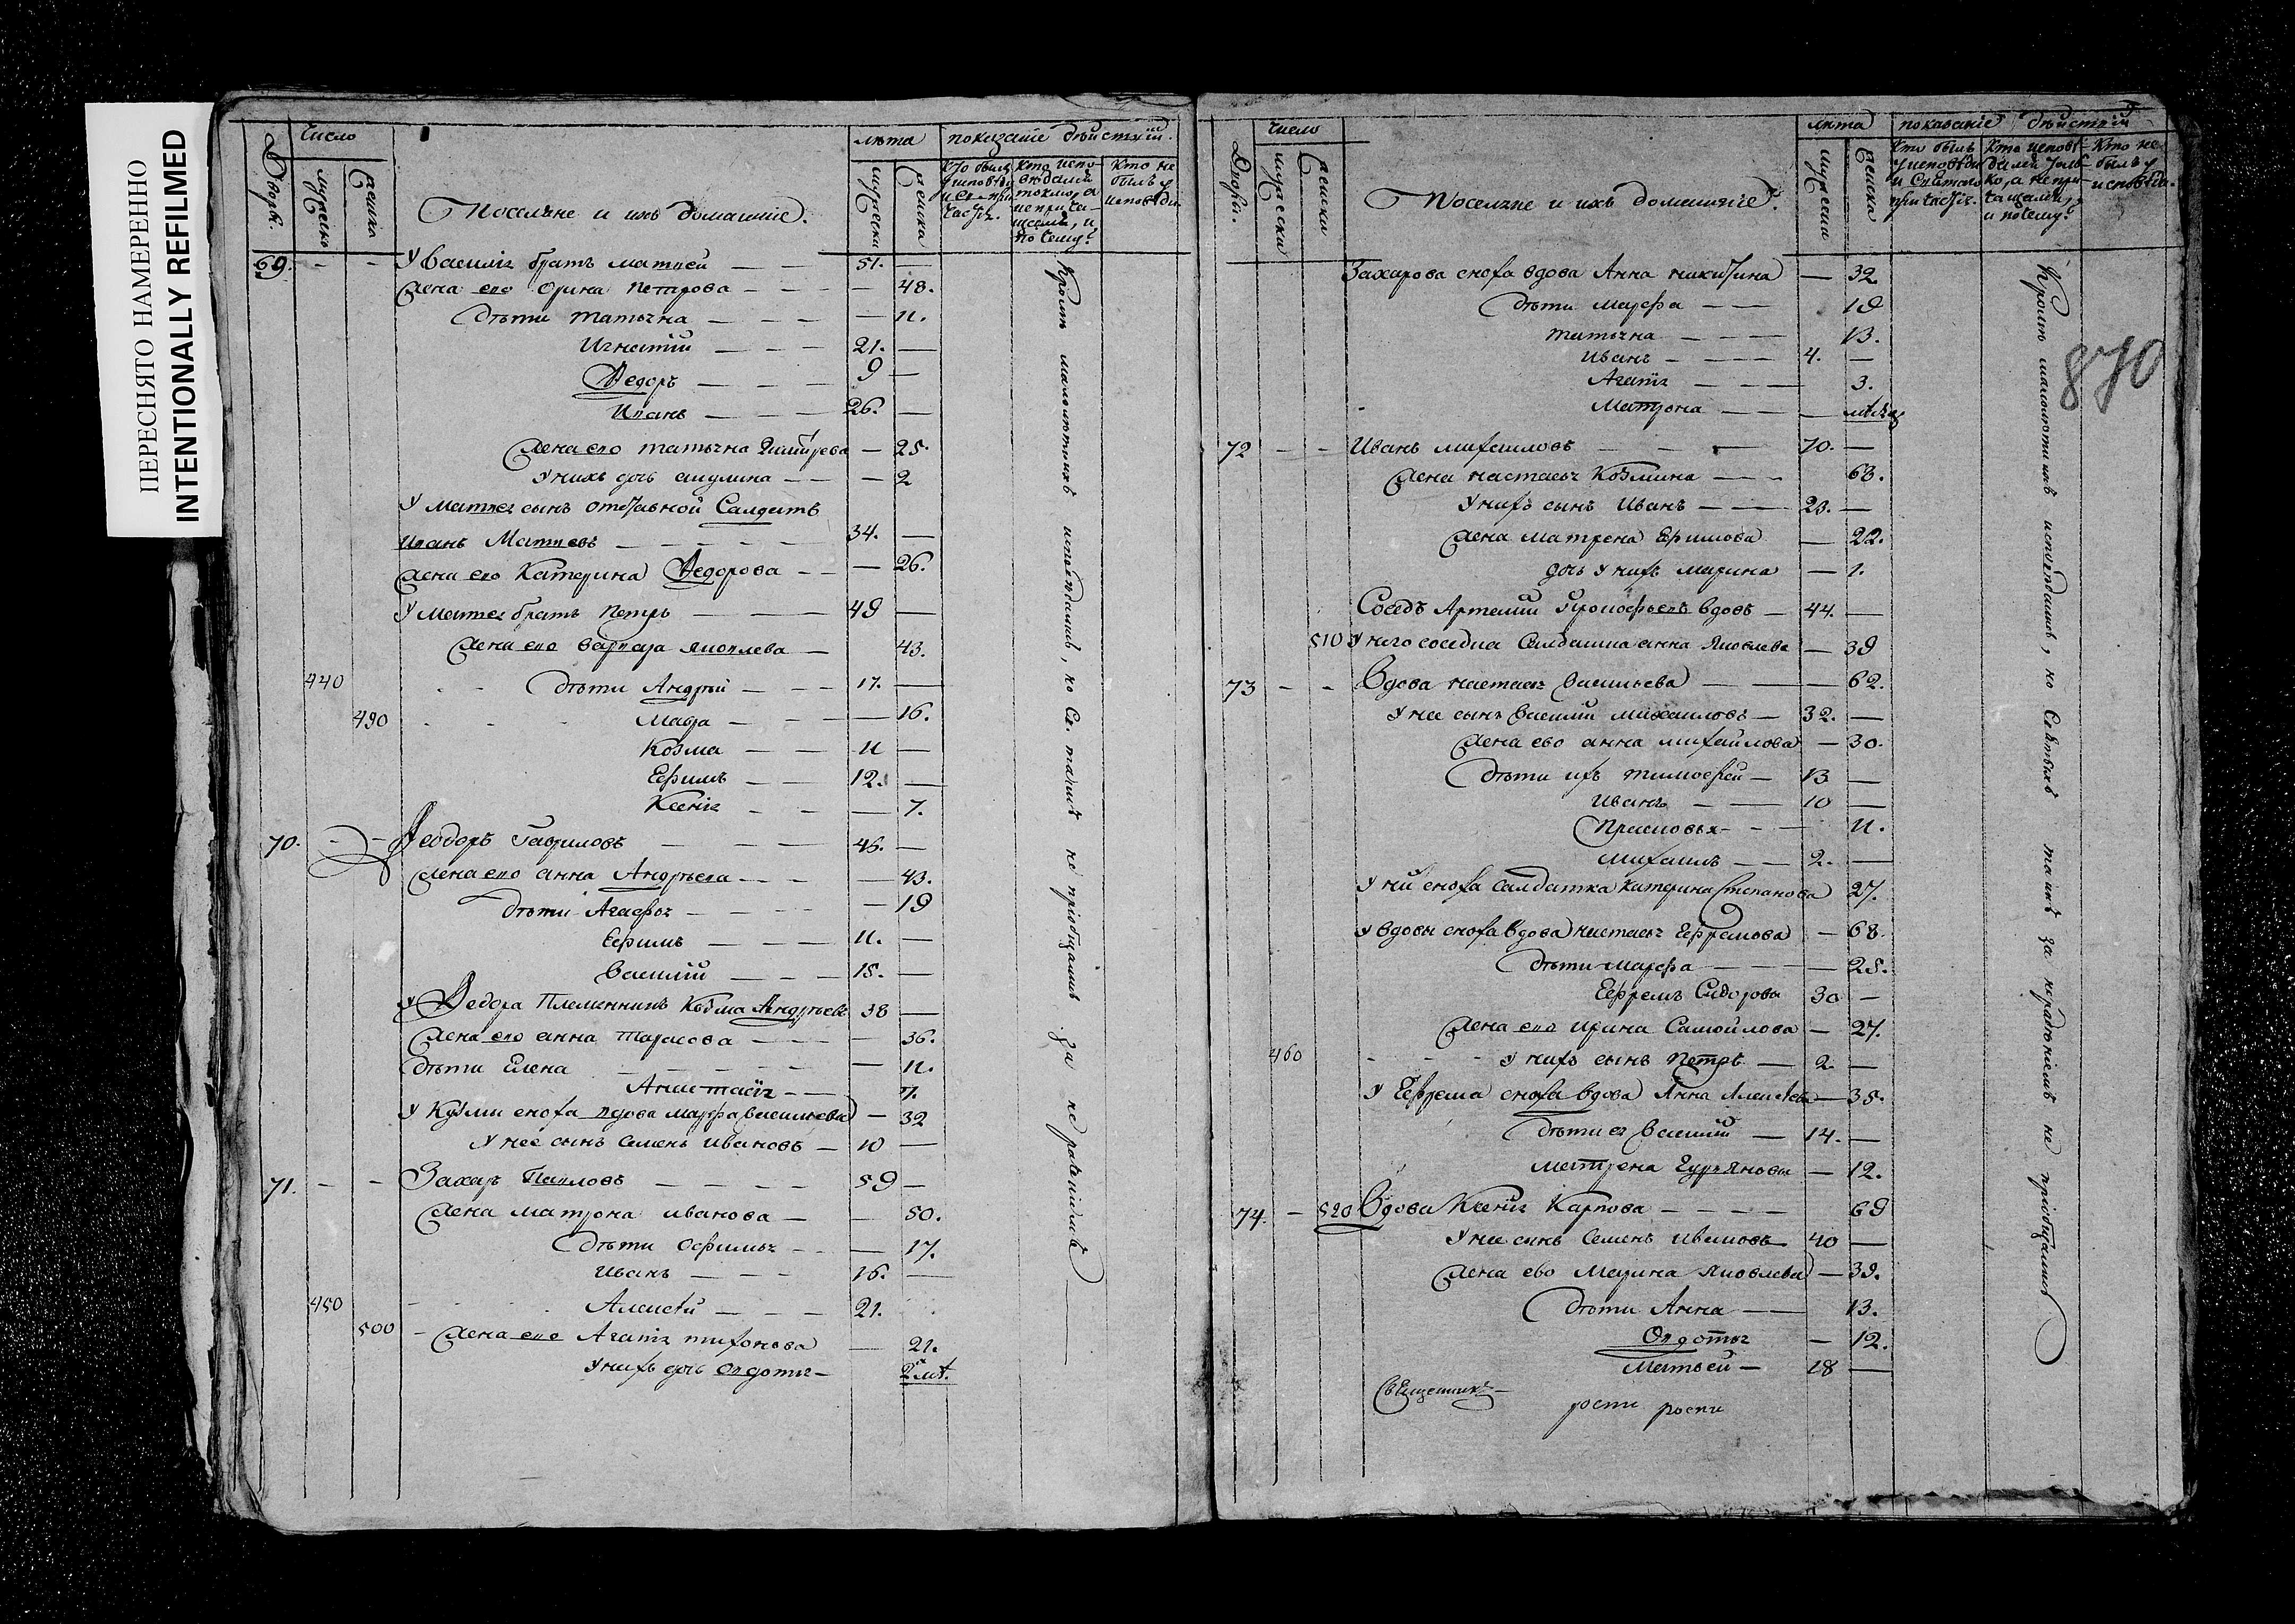 ПЕРЕСНЯТО НАМЕРЕННО
INTENTIONALLY REFILMED
Дворы. Число мужеско женско
Поселяне и ихъ домашніе.
лѣта мужески женска
показаніе дѣйствій.
Кто былъ у исповѣди и Св. прич
Кто испо вѣдался токмо, а не прича щался, и по чему?
Кто не былъ у исповѣди.
69. - - У Василія братъ матвей — — 51. —
Жена его Орина Петрова — — 48.
дѣти татьяна — — — 11.
Игнатій — — — 21. —
Федоръ — — — 9 —
Иванъ — — — 26. —
Жена его татьяна Дмитрева — 25.
У нихъ дочь акулина — — 2
У Матвея сынъ отставной Салдатъ
Иванъ Матвевъ — — — 34. —
Жена его Катерина Федорова — — 26.
У Матвея братъ Петръ — — 49 —
Жена его варвара яковлева — 43.
440 дѣти Андрей — — 17. —
490 Мавра — — — 16.
Козма — — 11 —
Ефимъ — — 12. —
Ксенія — — — 7.
70. - - Феодоръ Гавриловъ — — — 46. —
Жена его анна Андрѣева — — — 43.
дѣти Агафья — — — 19
Ефимъ — — — 11. —
Василій — — — 15. —
У Федора Племянникъ Козма Андрѣевъ 38 —
Жена его анна Тарасова — — — 36.
дѣти Елена — — — 11.
Анастасія — — 7.
У Кузмы сноха вдова марфа васильева — 32
У нее сынъ Семенъ ивановъ — 10 —
71. - - Захаръ Павловъ — — — 59 —
Жена матрона иванова — — 50.
Дѣти Офимья — — — 17.
Иванъ — — — 16. —
450 Алексѣй — — — 21.
500 Жена его Агапія тихонова — 21.
У нихъ дочь Овдотья — 2 мѣ.
Кромѣ малолѣтныхъ исповѣдались, но Св. таинъ не пріобщались за не раченіемъ
Дворы. число мужески женски
Поселяне и ихъ домашніе.
лѣта мужески женска
показаніе дѣйствій
Кто былъ у исповѣди и Св. прич
Кто исповѣ дался толь ко, а не при чащался, и почему?
Кто не былъ у исповѣди.
870
Захарова сноха вдова Анна никитина — 32.
Дѣти марфа — — 19
татьяна — — — 13.
Иванъ — — — 4. —
Агапія — — — 3.
Матрона — — —
72 - - Иванъ михаиловъ — — 70. —
Жена настасья Козмина — — 63.
У нихъ сынъ Иванъ — — 23. —
Жена матрена Ефимова — 22.
дочь у нихъ марина — 1.
Соседъ Артемій Прокофьевъ вдовъ — 44. —
510 У него соседка Салдатка анна Яковлева — 39
73 - - Вдова настасья васильева — — 62.
У нее сынъ василій михаиловъ — 32. —
Жена ево анна михайлова — 30.
Дѣти ихъ тимофей — 13 —
Иванъ — — 10 —
Прасковья — — 11.
Михаилъ — — 2. —
У ней сноха салдатка катерина Степанова 27.
У вдовы сноха вдова настасья Ефремова — 68.
дѣти марфа — — — 25.
Ефремъ Сидоровъ 30 —
Жена его ирина Самойлова — 27.
460 У нихъ сынъ Петръ — 2. —
У Ефрема сноха вдова Анна Алексѣева — 35.
Дѣти ея василій — 14. —
Матрена Гурьянова — 12.
74. - 520 Вдова Ксенія Карпова — — — 69
У нее сынъ Семенъ ивановъ 40 —
Жена ево Марина Яковлева — 39.
Дѣти Анна — — 13.
Овдотья — 12.
Матвей — 18 —
Священникъ
Кромѣ малолѣтныхъ исповѣдались, но Святыхъ таинъ за нерадѣніемъ не пріобщались